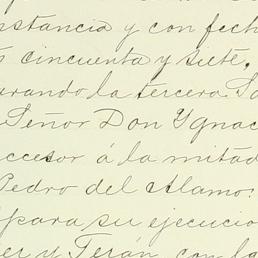 stancia y con fech
cincuenta y siete.
rando la tercera Sa
Señor Don Ygnac
ccesor á la mitad
Pedro del Alamo:
para su ejecucio
er y Terán, con la